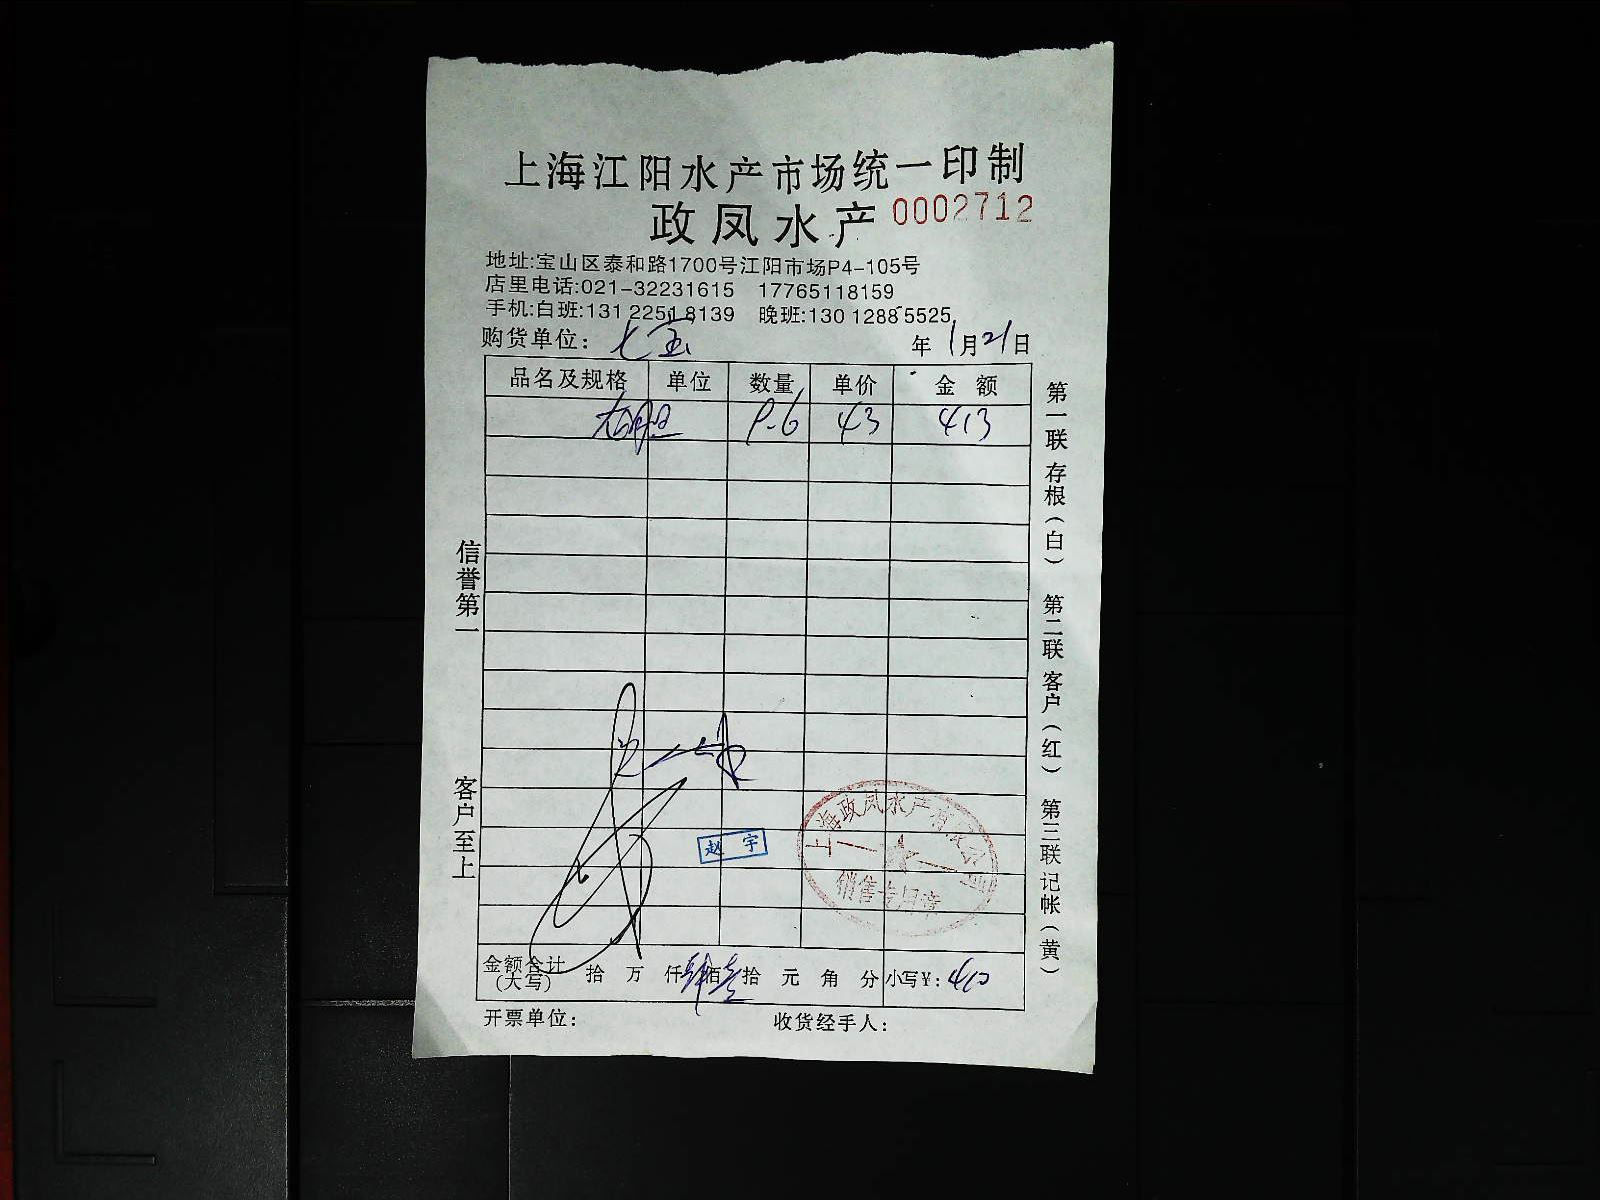 上海江阳水产市场统一印制
政凤水产 0002712
地址:宝山区泰和路1700号江阳市场P4-105号
店里电话:021-32231615 17765118159
手机:白班:131 2251 8139 晚班:130 1288 5525
购货单位: 七宝 年 1月21日
品名及规格 单位 数量 单价 金额
9.6 43 413
信誉第一
客户至上
第一联 存根(白) 第二联 客户(红) 第三联 记帐(黄)
赵宇
上海政凤水产有限公司
销售专用章
金额合计(大写) 拾 万 仟 肆佰壹拾 元 角 分 小写¥: 410
开票单位: 收货经手人: